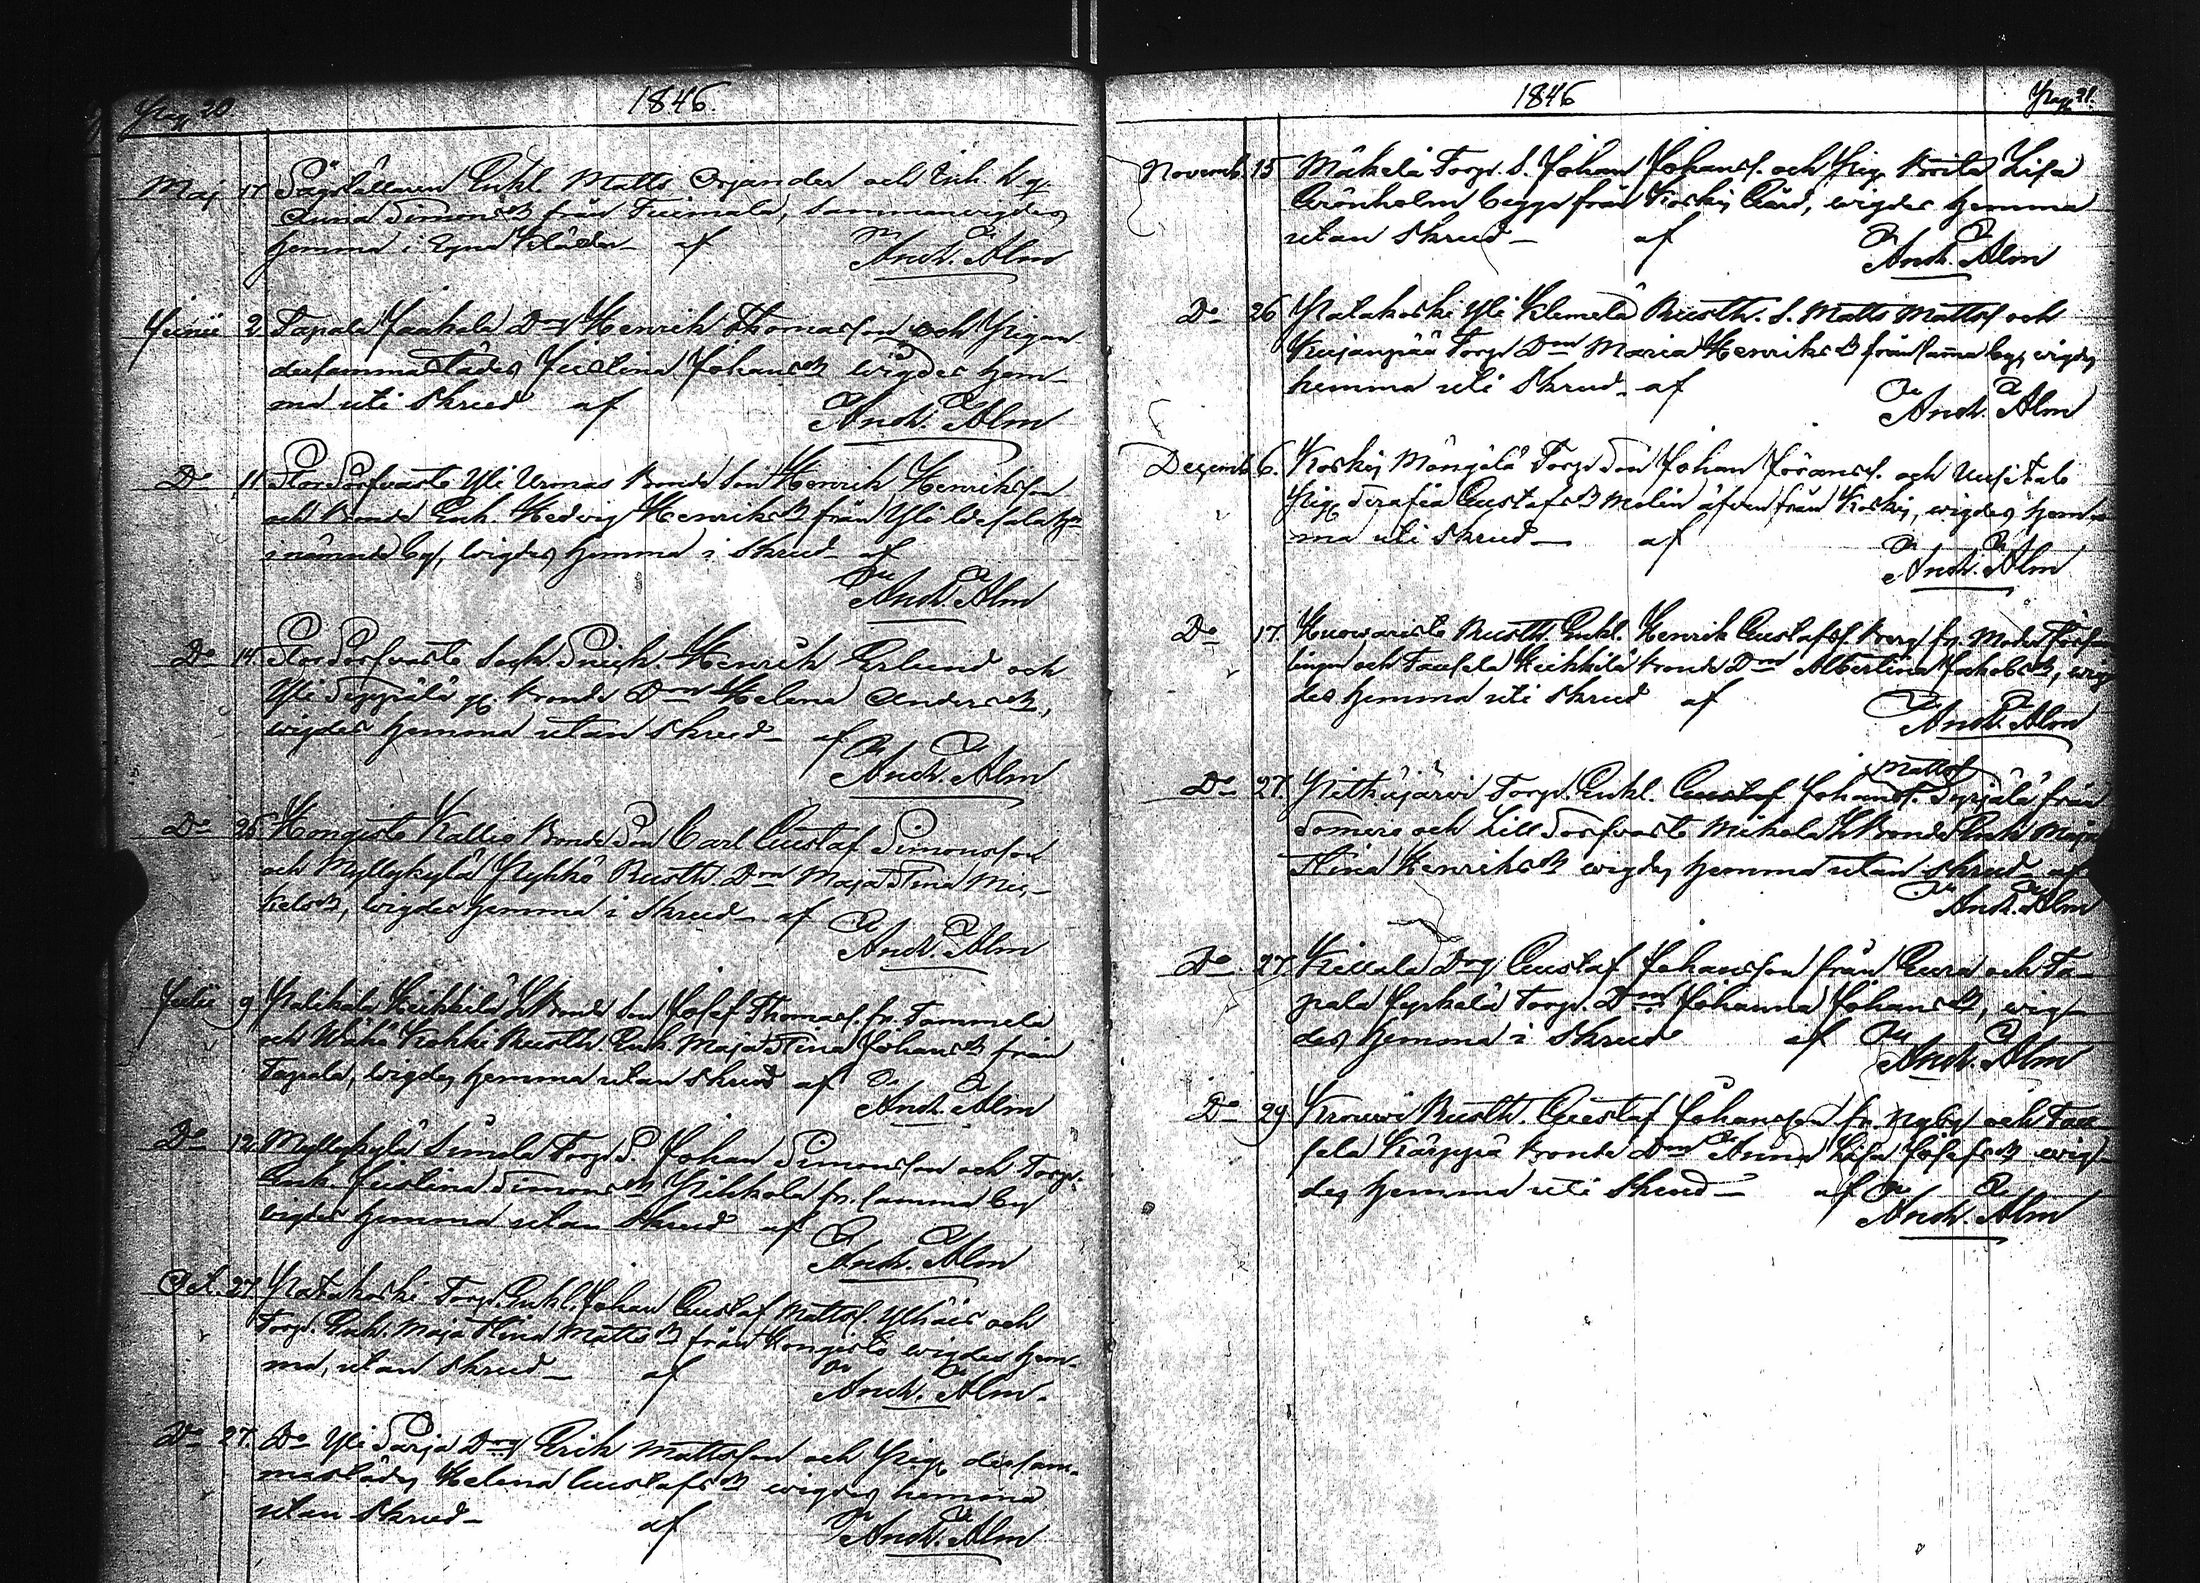 Pag 20
1846.
Maj 17. Sågställaren Enkl. Matts Orjander och Enk. h. q.
Anna Simonsdr från Tuimala, sammanvigdes
hemma i Egna Kläder af
Andr. Alm
Junii 2. Tapala Jaakola Drg Henrik Thomasson och Pigan
dersammastädes Justina Johansdr wigdes hem-
ma uti Skrud af
Andr. Alm
Do 11 Stor Sorfvasto Yli Urmas Bonde Son Henrik Henriksson
och Bonde Enk. Hedvig Henriksdr från Yli
i nämnde by, wigdes hemma i Skrud af
Andr. Alm
Do 14. Stor Sorfvasto Sock. Snick. Henrik Erlund och
Yli Seppälä Bonde Dn Helena Andersdr,
wigdes hemma utan Skrud af
Andr. Alm
Do 25 Hongisto Kallio Bonde Son Carl Gustaf Simonsson
och Myllykylä Pykkö Rusth. Dn Maja Stina Mic-
kelsdr, wigdes hemma i Skrud af
Andr. Alm
Julii 9 Palikala Heikkilä Bonde Son Josef Thomass. fr. Tammela
och Wähä Kokki Rusth. Enk. Maja Stina Johansdr från
Tapala, wigdes hemma utan Skrud af
Andr. Alm
Do 12. Myllykylä Simola Torp. S. Johan Simonsson och Torp.
Enk. Justina Simonsdr Pihkola fr. samma by
wigdes hemma utan Skrud af
Andr. Alm
Oct. 27 Patakoski Torp. Enkl. Johan Gustaf Mattss. Ylhäis och
Torp. Enk. Maja Stina Mattsdr från Hongisto wigdes hem-
ma, utan Skrud af
Andr. Alm.
Do 27. Do Yli Sarja Drg Erik Mattsson och Pig. dersam-
mastädes Helena Gustafsdr wigdes hemma
utan Skrud af
Andr. Alm
1846
Pag 21.
Novemb. 15 Mäkelä Torp. S. Johan Johanss. och Pig. Brita Lisa
Grönholm begge från Koskis Gård, wigdes hemma
utan Skrud af
Andr. Alm
Do 26 Patakoski Yli Klemelä Rusth. S. Matts Mattss. och
Kujanpää Torp. Dn Maria Henriksdr från samma by, wigdes
hemma uti Skrud af
Andr. Alm
Decemb. 6. Koskis Mängälä Torp. Son Johan Jöranss. och Uusitalo
Pig. Serafia Gustafsdr Molin äfven från Koskis, wigdes hem-
ma uti Skrud af
Andr. Alm
Do 17. Huovaristo Rusth. Enkl. Henrik Gustafss. Berg fr. Moder Försam-
lingen och Tausela Heikkilä Bonde Dn Albertina Jacobsdr, wig-
des hemma uti Skrud af
Andr. Alm
Mattss.
Do 27. Pitkäjärvi Torp. Enkl. Gustaf Johanss. Syrjälä från
Somero och Lill Sorfvasto Mikola Bonde Enk. Maja
Stina Henriksdr wigdes hemma utan Skrud af
Andr. Alm
Do 27. Killala Drg Gustaf Johansson från Eura och Ta-
pala Jyrkelä Torp. Dn Johanna Johansdr, wig-
des hemma i Skrud af
Andr. Alm
Do 29. Krouvi Rusth. Gustaf Johansson fr. Nyby och Tau
sela Kärppä Bonde Dn Anna Lisa Josefsdr wig-
des hemma uti Skrud af
Andr. Alm